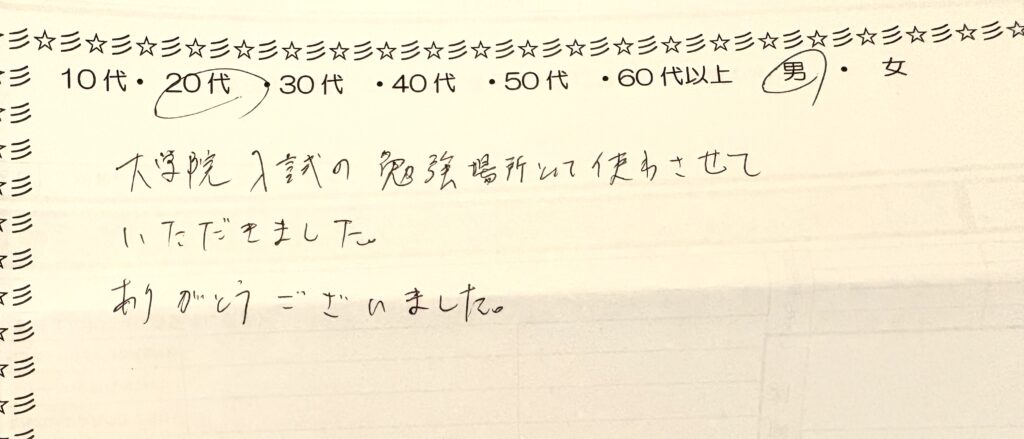 10代・20代・30代・40代・50代・60代以上 男・女
大学院入試の勉強場所として使わさせて
いただきました。
ありがとうございました。